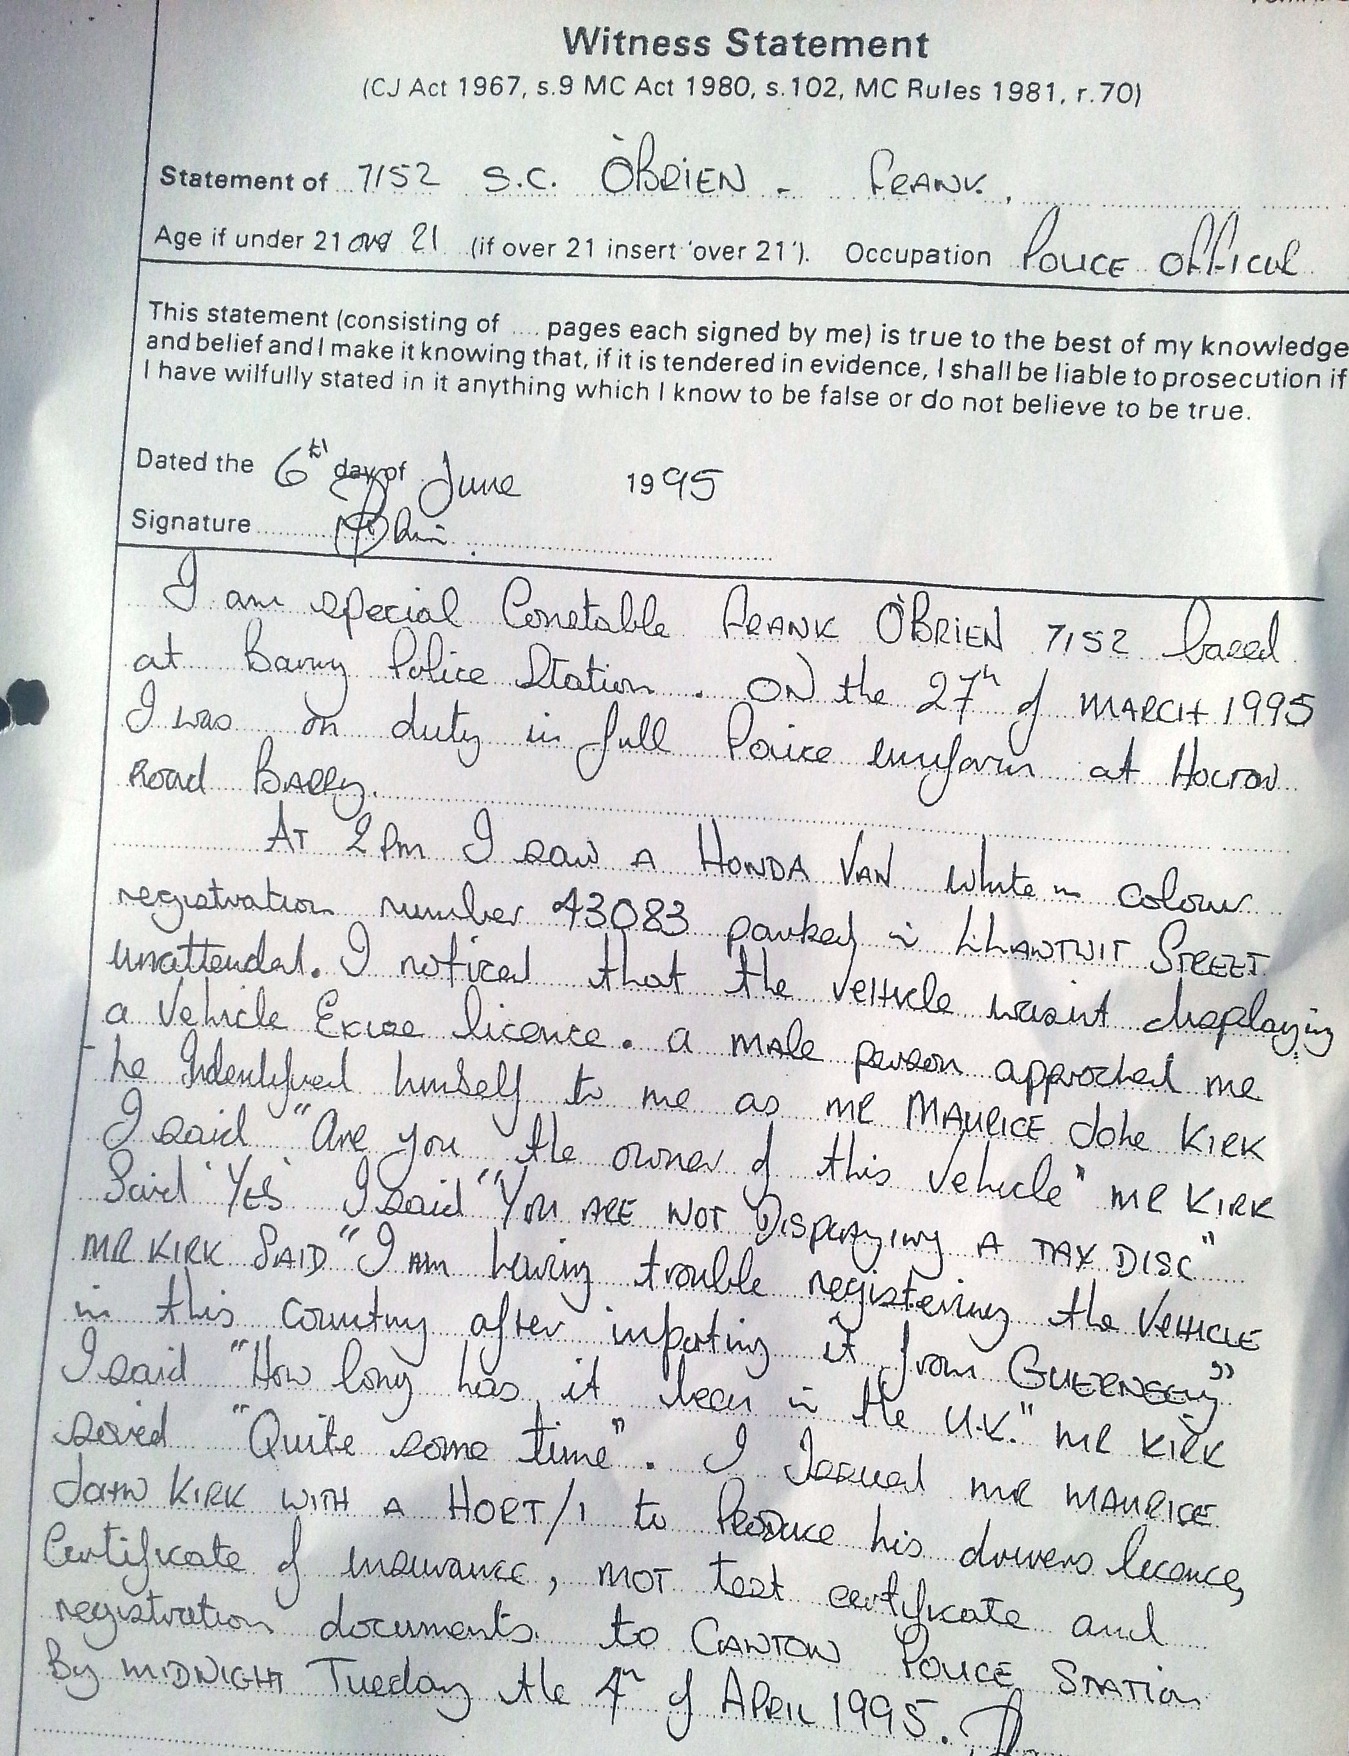 Witness Statement
(CJ Act 1967, s.9 MC Act 1980, s.102, MC Rules 1981, r.70)
Statement of 7152 S.C. O'BRIEN - FRANK.
Age if under 21 over 21 (if over 21 insert 'over 21'). Occupation POLICE Officer
This statement (consisting of .... pages each signed by me) is true to the best of my knowledge
and belief and I make it knowing that, if it is tendered in evidence, I shall be liable to prosecution if
I have wilfully stated in it anything which I know to be false or do not believe to be true.
Dated the 6th day of June 1995
Signature
I am special Constable FRANK O'BRIEN 7152 based
at Barry Police Station. ON the 27th of MARCH 1995
I was on duty in full Police uniform at HOLTON
Road BARRY.
AT 2 Pm I saw A HONDA VAN white in colour
registration number 43083 parked in LLANTWIT STREET
unattended. I noticed that the VEHICLE wasint displaying
a Vehicle Excise licence. a male person approched me
he Indentifyed himself to me as MR MAURICE Johe KIRK
I said "Are you the owner of this Vehicle" MR KIRK
Said 'YES' I said "YOU ARE NOT DISPLAYING A TAX DISC"
MR KIRK SAID "I AM having trouble registering the VEHICLE
in this Country after inporting it from GUERNSEY"
I said "How long has it been in the U.K." MR KIRK
said "Quite some time". I Issued MR MAURICE
JOHN KIRK WITH A HORT/1 to PRODUCE his drivers licence,
Certificate of insurance, MOT test certificate and
registration documents. to CANTON POLICE STATION
By MIDNIGHT Tuesday the 4th of APRIL 1995.